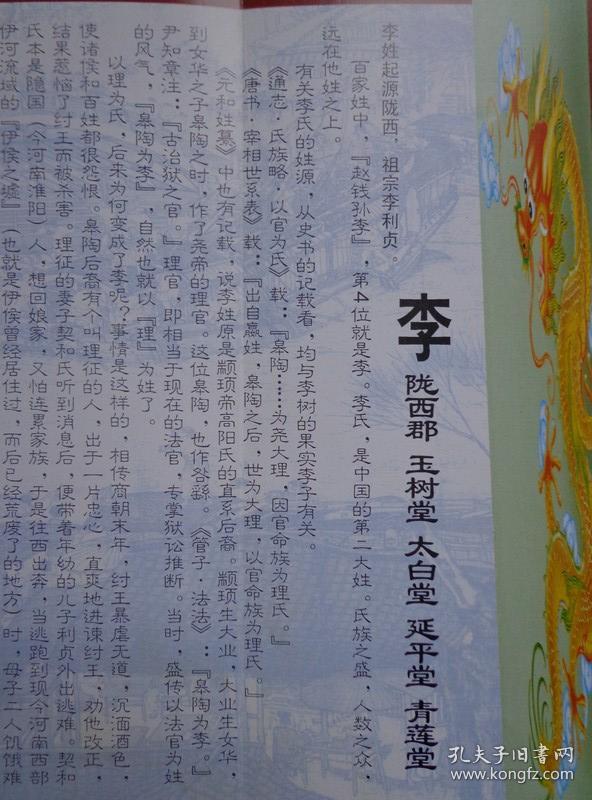 李 陇西郡 玉树堂 太白堂 延平堂 青莲堂
李姓起源陇西，祖宗李利贞。
百家姓中，『赵钱孙李』，第4位就是李。李氏，是中国的第二大姓。氏族之盛，人数之众，
远在他姓之上。
有关李氏的姓源，从史书的记载看，均与李树的果实李子有关。
《通志·氏族略·以官为氏》载：『皋陶……为尧大理，因官命族为理氏。』
《唐书 宰相世系表》载：『出自嬴姓，皋陶之后，世为大理，以官命族为理氏。』
《元和姓纂》中也有记载，说李姓原是颛顼帝高阳氏的直系后裔。颛顼生大业，大业生女华，
到女华之子皋陶之时，作了尧帝的理官。这位皋陶，也作咎繇。《管子·法法》：『皋陶为李。』
尹知章注：『古治狱之官。』理官，即相当于现在的法官，专掌狱讼推断。当时，盛传以法官为姓
的风气，『皋陶为李』，自然也就以『理』为姓了。
以理为氏，后来为何变成了李呢？事情是这样的，相传商朝末年，纣王暴虐无道，沉湎酒色，
使诸侯和百姓都很怨恨。皋陶后裔有个叫理征的人，出于一片忠心，直爽地进谏纣王，劝他改正，
结果惹恼了纣王而被杀害。理征的妻子契和氏听到消息后，便带着年幼的儿子利贞外出逃难。契和
氏本是隐国（今河南淮阳）人，想回娘家，又怕连累家族，于是往西出奔，当逃跑到现今河南西部
伊河流域的『伊侯之墟』（也就是伊侯曾经居住过，而后已经荒废了的地方）时，母子二人饥饿难
孔夫子旧书网
www.kongfz.com